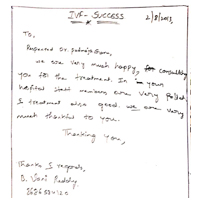 IVF - SUCCESS
2/8/2013,
To,
Respected Dr.
we are very much happy, for consulting
you for the treatment. In your
hospital staff members are very polite,
& treatment also good. we are very
much thankful to you.
Thanking you,
Thanks & regards,
D. Vani Reddy